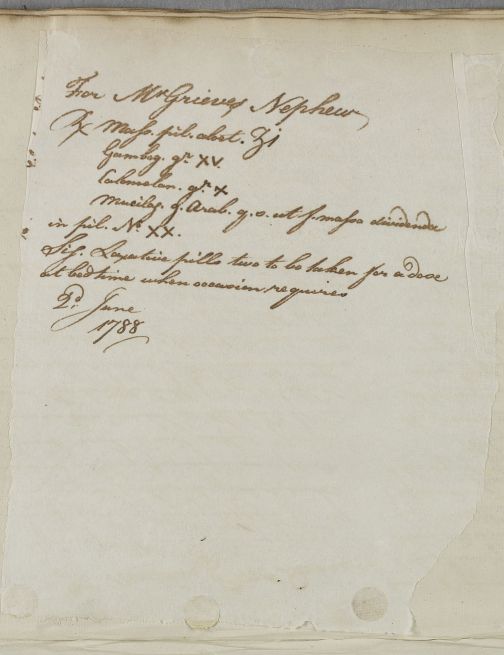 For Mr Grieves Nephew
℞ Mass. pil. aloet. ʒi
Gambog. gr. XV.
Calomelan. gr. X
Mucilag. g. Arab. q. s. ut f. massa dividenda
in pil. No. XX.
Sig. Laxative pills two to be taken for a dose
at bedtime when occasion requires
2d. June
1788